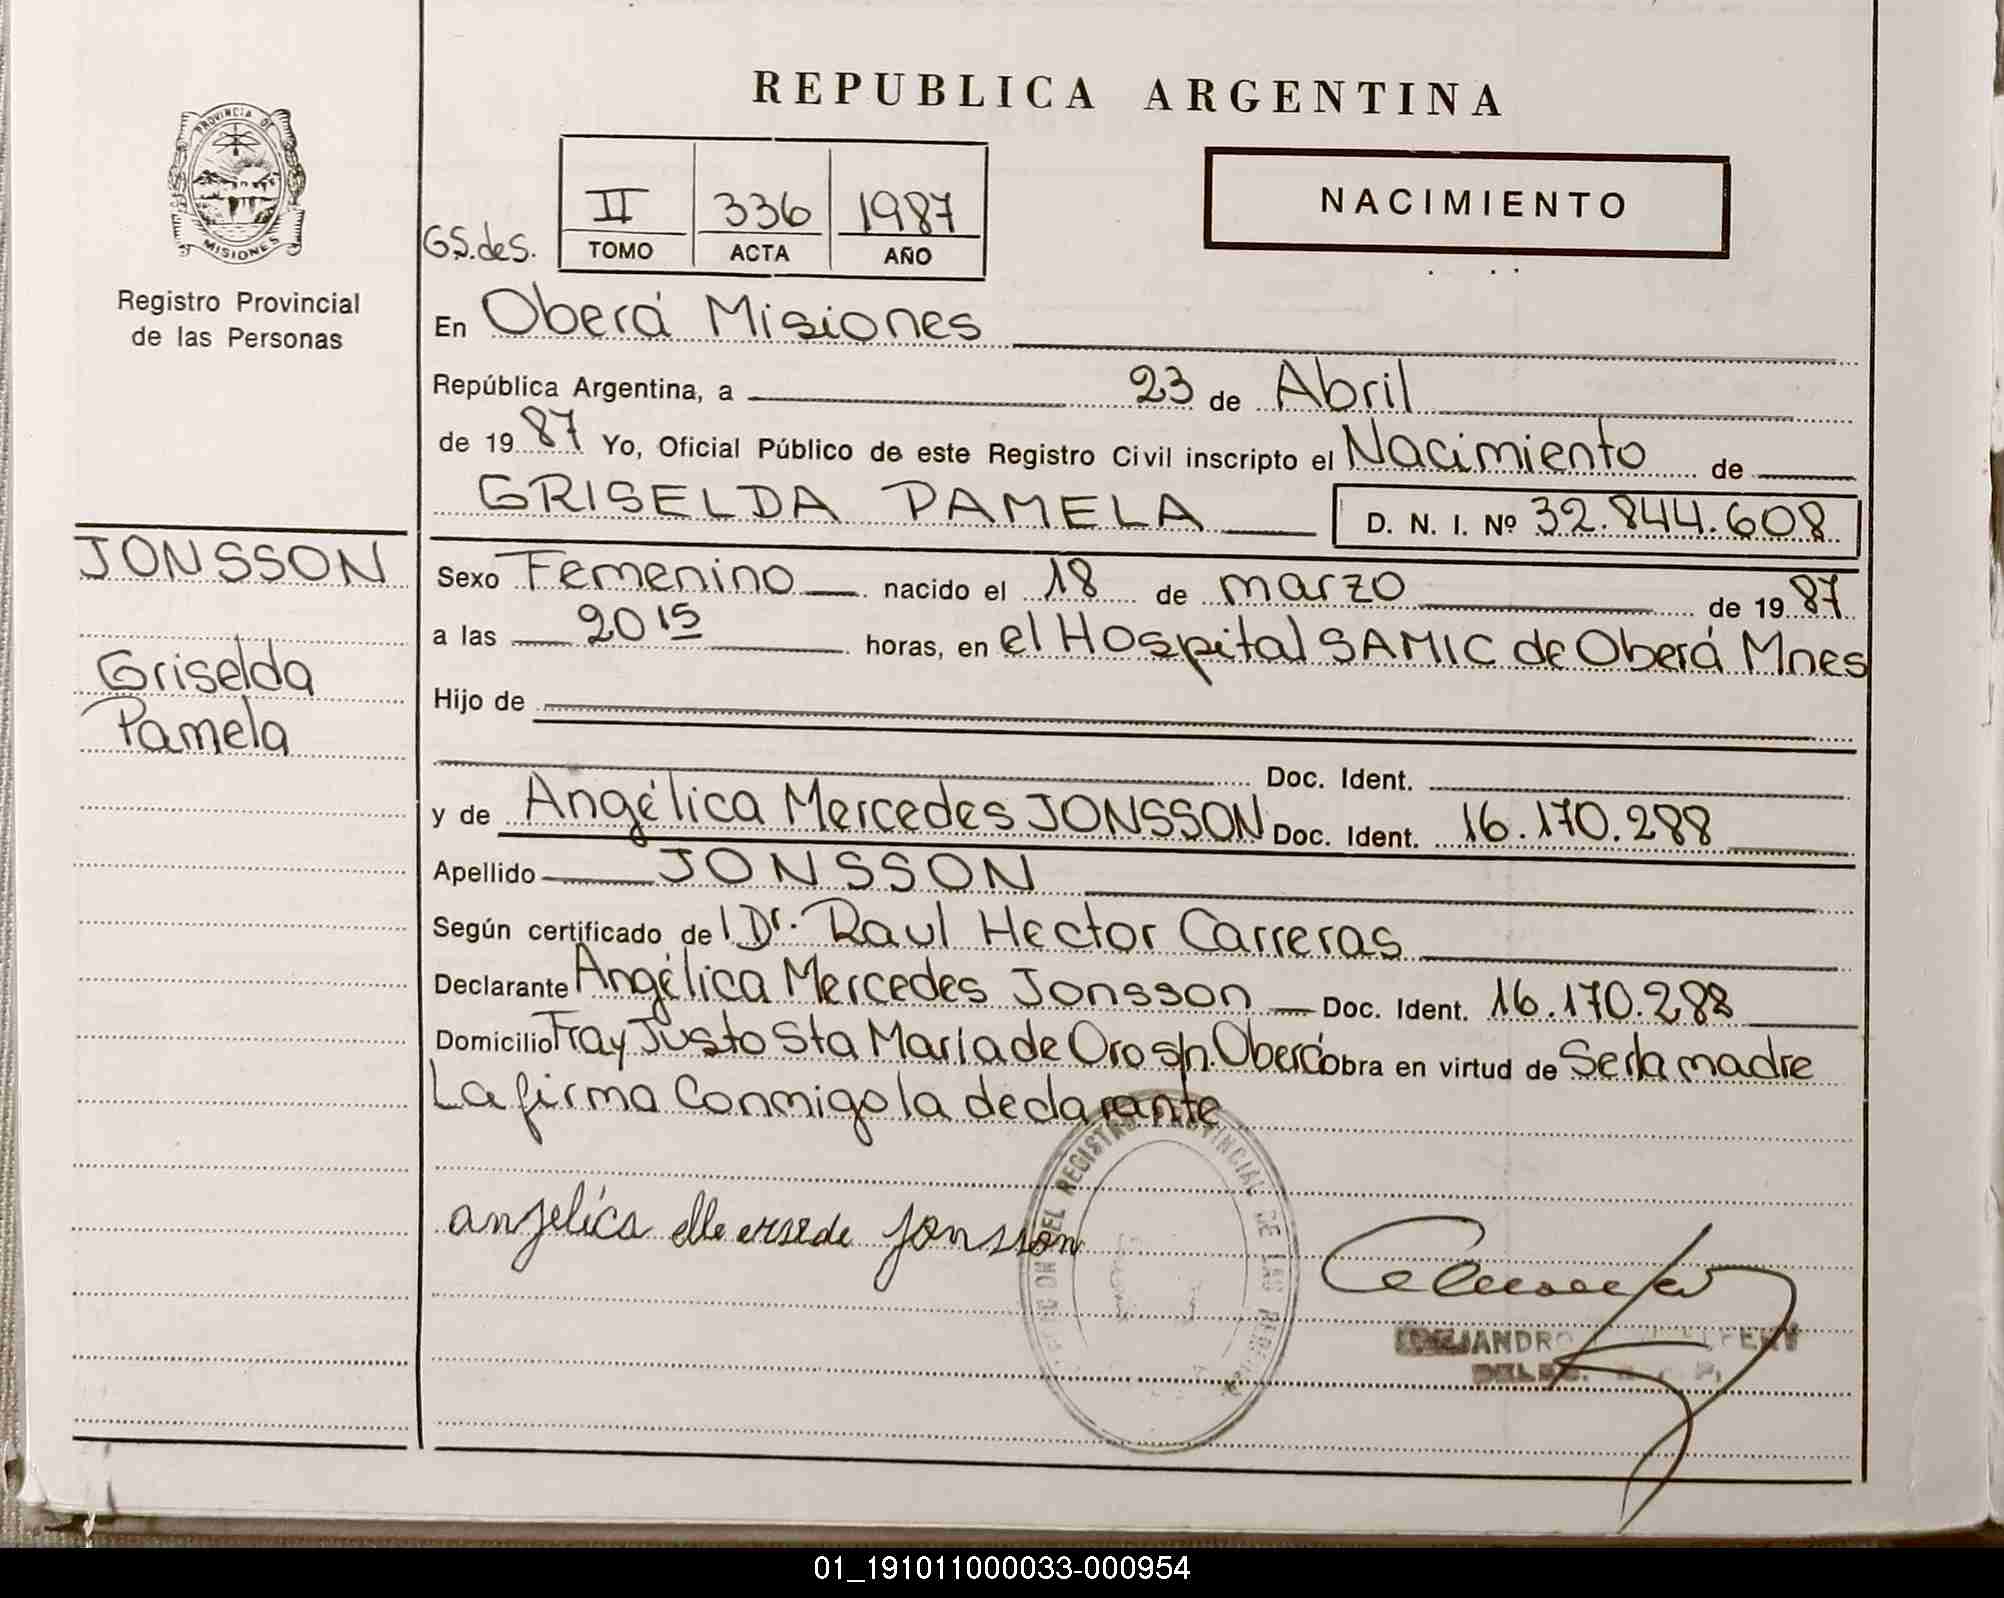 REPUBLICA ARGENTINA
PROVINCIA DE
MISIONES
Registro Provincial
de las Personas
NACIMIENTO
GS.des.
II 336 1987
TOMO ACTA AÑO
En Oberá Misiones
República Argentina, a 23 de Abril
de 19 87 Yo, Oficial Público de este Registro Civil inscripto el Nacimiento de
GRISELDA PAMELA D. N. I. Nº 32.844.608
JONSSON
Griselda
Pamela
Sexo Femenino nacido el 18 de marzo de 19 87
a las 20 15 horas, en el Hospital SAMIC de Oberá Mnes
Hijo de
Doc. Ident.
y de Angélica Mercedes JONSSON Doc. Ident. 16.170.288
Apellido JONSSON
Según certificado de l Dr. Raul Hector Carreras
Declarante Angélica Mercedes Jonsson Doc. Ident. 16.170.288
Domicilio Fray Justo Sta María de Oro s/n. Oberá obra en virtud de Ser la madre
La firma Conmigo la declarante
angelica Mersede Jonsson
DEL REGISTRO PROVINCIAL DE LAS
01_191011000033-000954